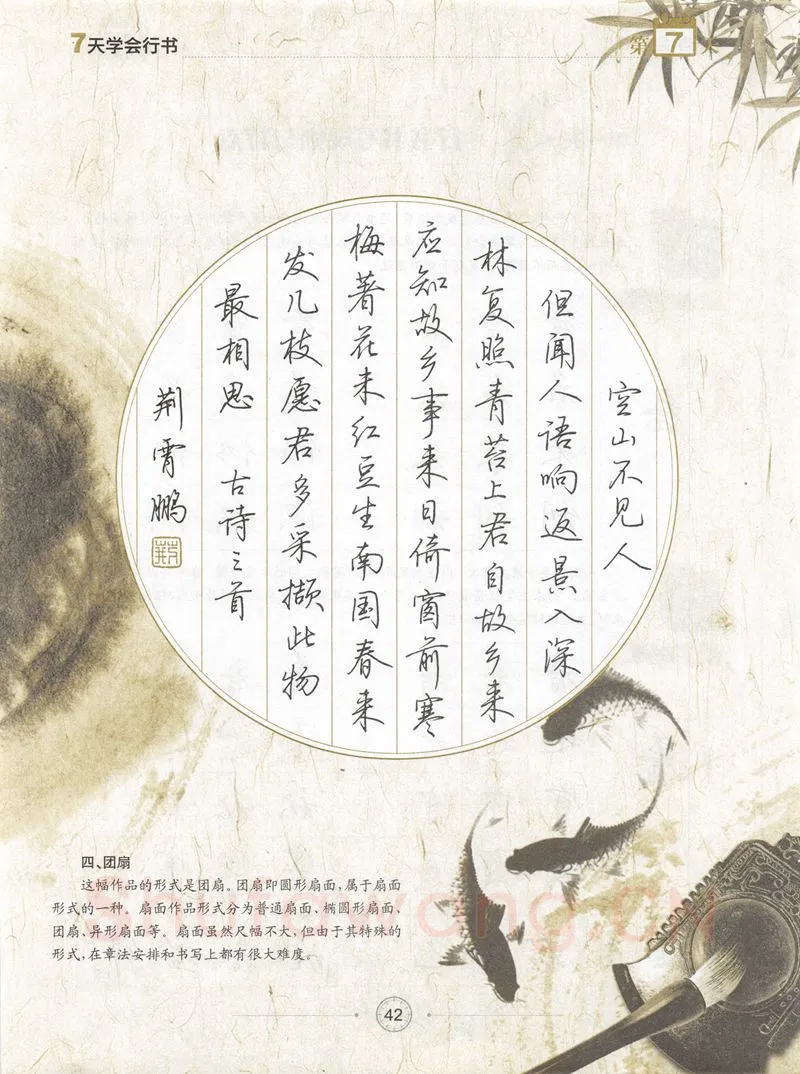 7天学会行书
第7天
空山不见人
但闻人语响返景入深
林复照青苔上君自故乡来
应知故乡事来日倚窗前寒
梅著花未红豆生南国春来
发几枝愿君多采撷此物
最相思 古诗三首
荆霄鹏
荆
四、团扇
这幅作品的形式是团扇。团扇即圆形扇面,属于扇面
形式的一种。扇面作品形式分为普通扇面、椭圆形扇面、
团扇、异形扇面等。扇面虽然尺幅不大,但由于其特殊的
形式,在章法安排和书写上都有很大难度。
42